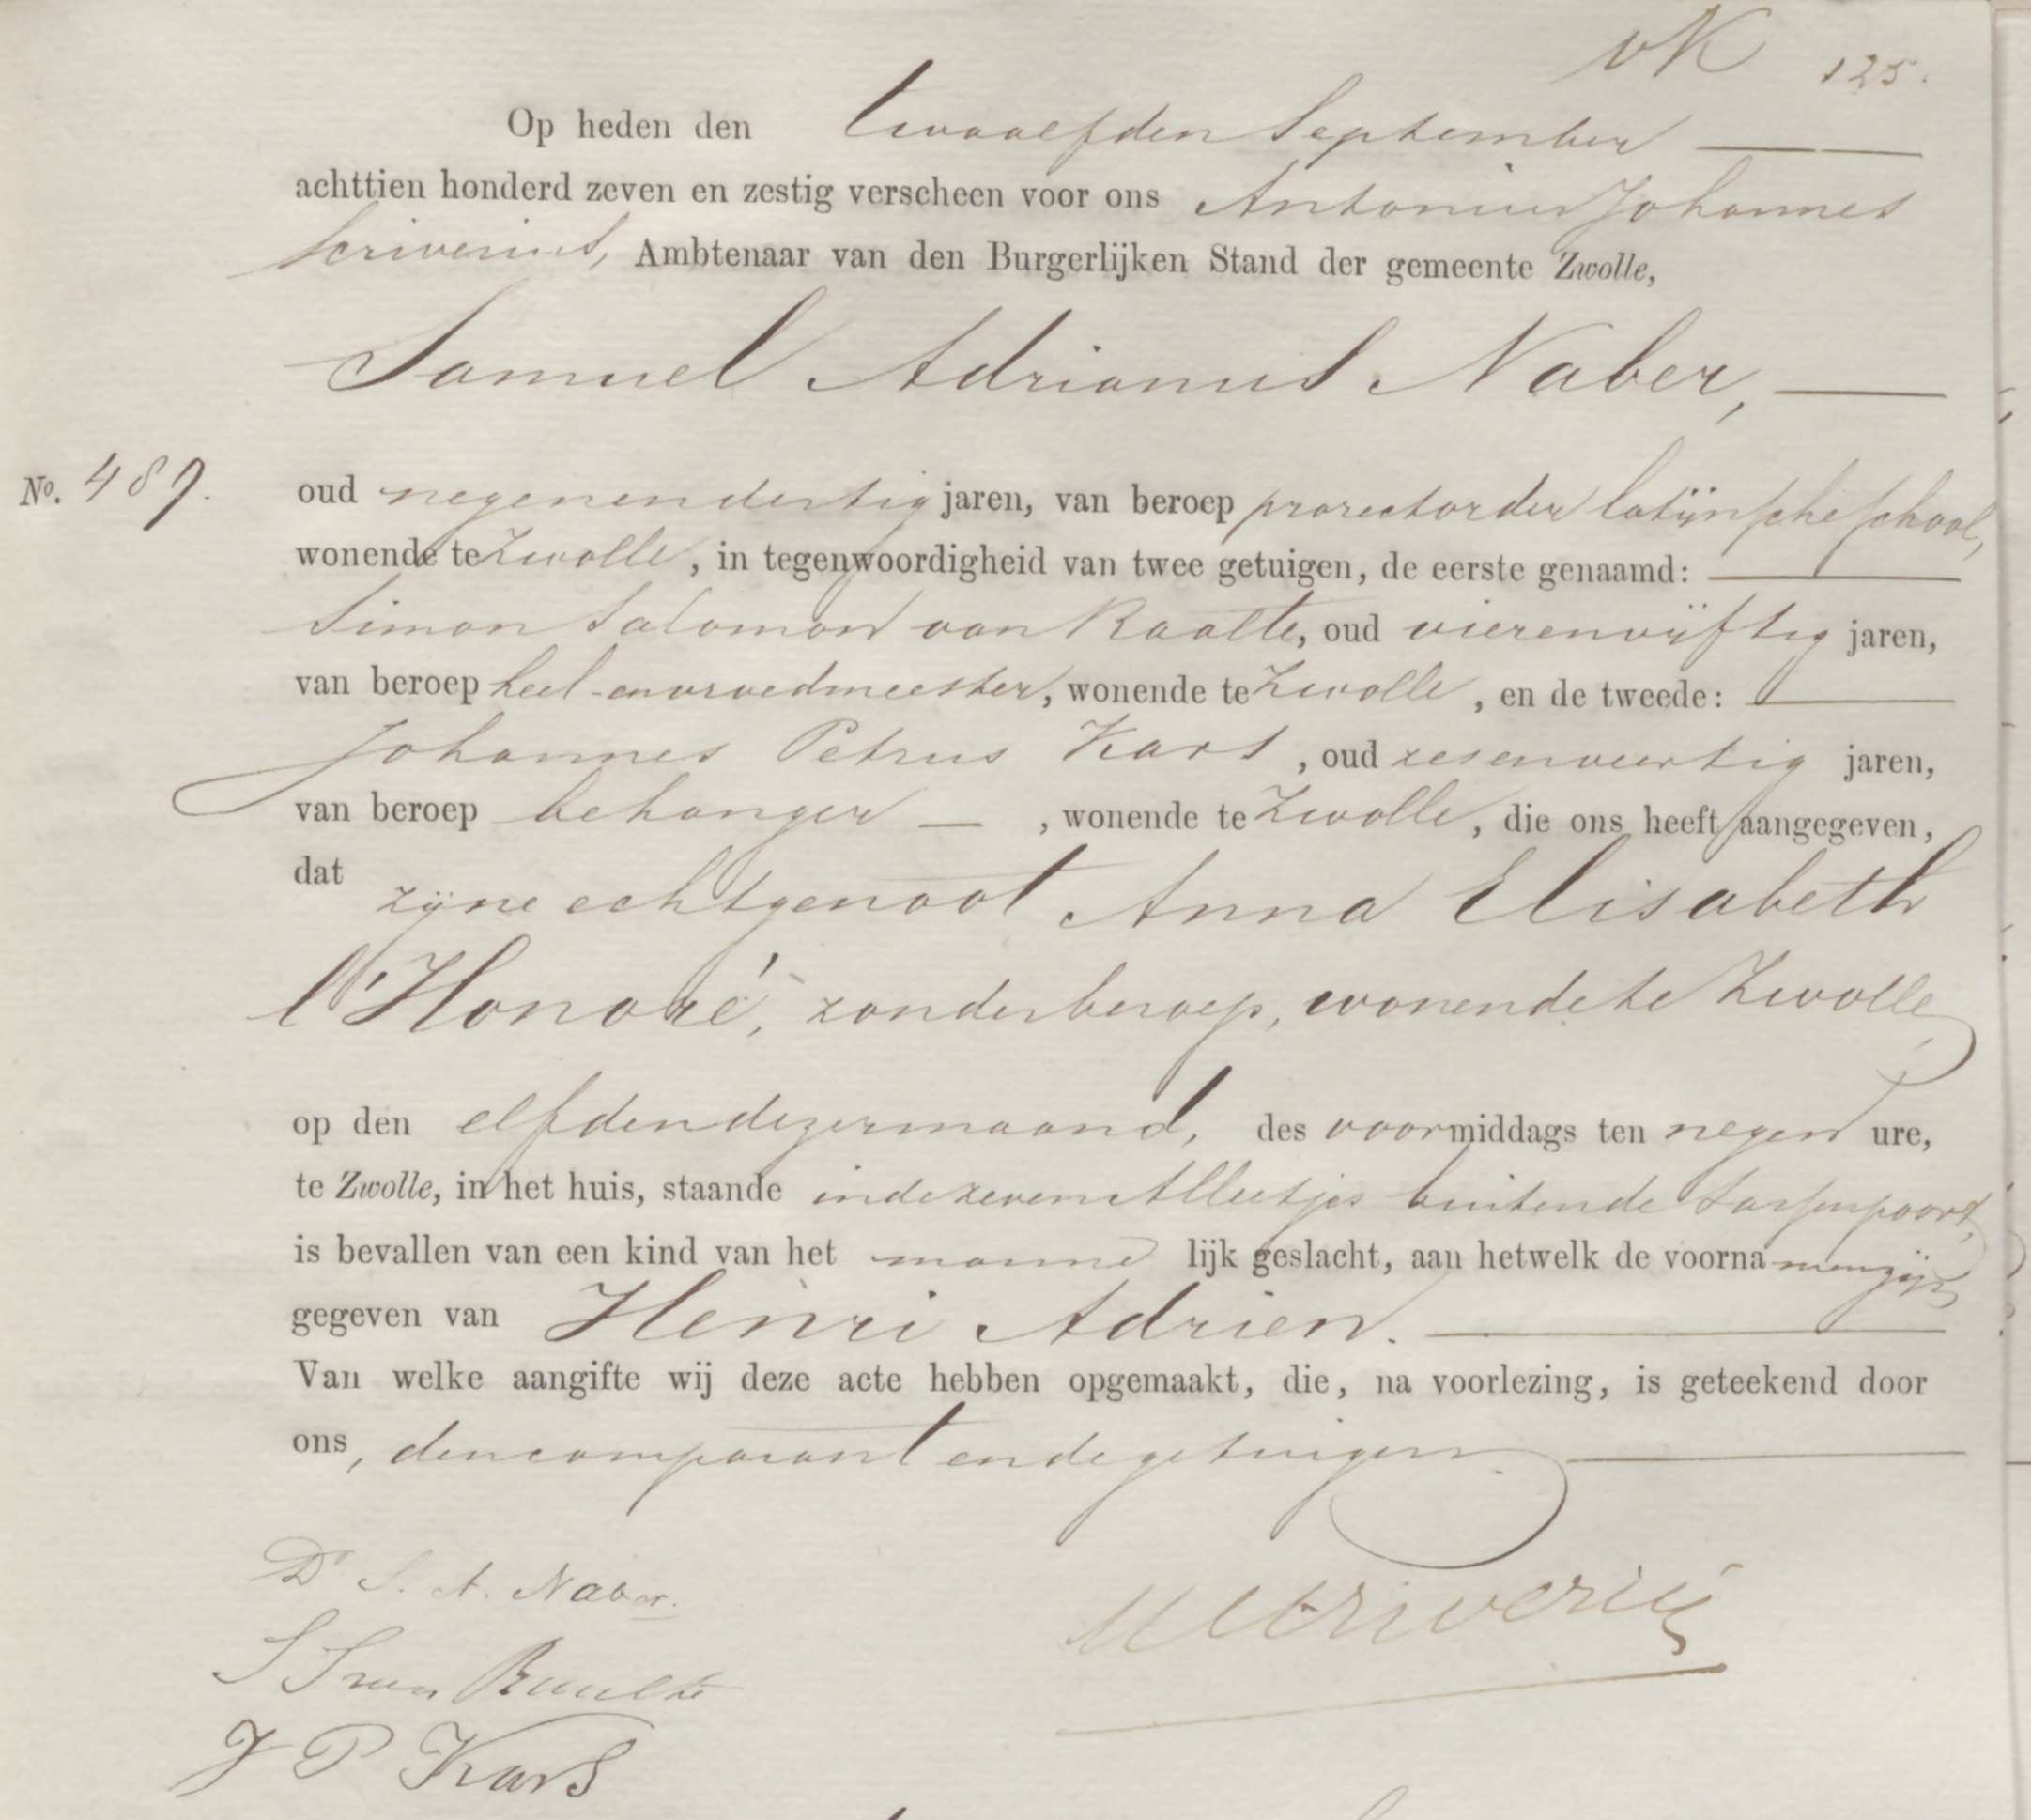 vK 125.
Op heden den twaalfden September
achttien honderd zeven en zestig verscheen voor ons Antonius Johannes
Scriverius, Ambtenaar van den Burgerlijken Stand der gemeente Zwolle,
Samuel Adrianus Naber,
No. 487.
oud negenendertig jaren, van beroep prorector der latijnsche school,
wonende te Zwolle, in tegenwoordigheid van twee getuigen, de eerste genaamd:
Simon Salomon van Raalte, oud vierenvijftig jaren,
van beroep heel- en vroedmeester, wonende te Zwolle, en de tweede:
Johannes Petrus Kars, oud zesenveertig jaren,
van beroep behanger, wonende te Zwolle, die ons heeft aangegeven,
dat zijne echtgenoot Anna Elisabeth
l'Honoré, zonder beroep, wonende te Zwolle,
op den elfden dezer maand, des voormiddags ten negen ure,
te Zwolle, in het huis, staande in de zeven Alleetjes buiten de Sassenpoort,
is bevallen van een kind van het manne lijk geslacht, aan hetwelk de voornamen zijn
gegeven van Henri Adrien.
Van welke aangifte wij deze acte hebben opgemaakt, die, na voorlezing, is geteekend door
ons, den comparant en de getuigen.
Dr S. A. Naber.
Scriverius
S S van Raalte
J P Kars